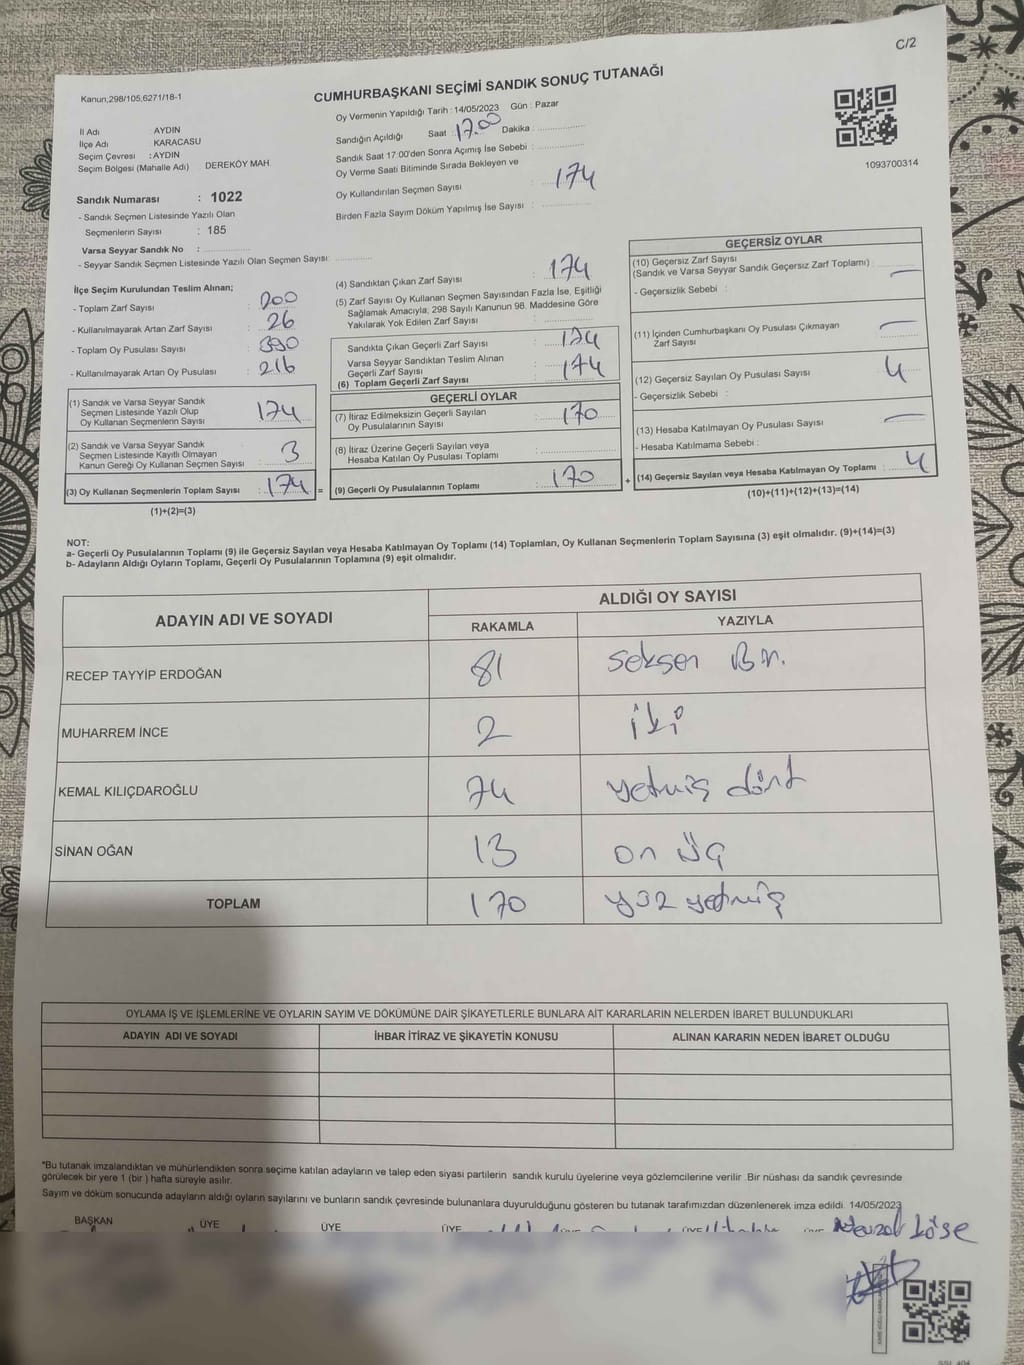 C/2
Kanun,298/105,6271/18-1
CUMHURBAŞKANI SEÇİMİ SANDIK SONUÇ TUTANAĞI
Oy Vermenin Yapıldığı Tarih : 14/05/2023 Gün : Pazar
İl Adı AYDIN
İlçe Adı KARACASU
Seçim Çevresi : AYDIN
Seçim Bölgesi (Mahalle Adı) DEREKÖY MAH.
Sandık Numarası : 1022
- Sandık Seçmen Listesinde Yazılı Olan
Seçmenlerin Sayısı : 185
Varsa Seyyar Sandık No :
- Seyyar Sandık Seçmen Listesinde Yazılı Olan Seçmen Sayısı:
Sandığın Açıldığı Saat : 17.00 Dakika :
Sandık Saat 17 00'den Sonra Açımış İse Sebebi :
Oy Verme Saati Bitiminde Sırada Bekleyen ve
Oy Kullandırılan Seçmen Sayısı : 174
Birden Fazla Sayım Döküm Yapılmış İse Sayısı :
1093700314
İlçe Seçim Kurulundan Teslim Alınan;
- Toplam Zarf Sayısı : 200
- Kullanılmayarak Artan Zarf Sayısı : 26
- Toplam Oy Pusulası Sayısı : 390
- Kullanılmayarak Artan Oy Pusulası : 216
(1) Sandık ve Varsa Seyyar Sandık
Seçmen Listesinde Yazılı Olup
Oy Kullanan Seçmenlerin Sayısı : 174
(2) Sandık ve Varsa Seyyar Sandık
Seçmen Listesinde Kayıtlı Olmayan
Kanun Gereği Oy Kullanan Seçmen Sayısı : 3
(3) Oy Kullanan Seçmenlerin Toplam Sayısı : 174 =
(1)+(2)=(3)
(4) Sandıktan Çıkan Zarf Sayısı : 174
(5) Zarf Sayısı Oy Kullanan Seçmen Sayısından Fazla İse, Eşitliği
Sağlamak Amacıyla; 298 Sayılı Kanunun 98. Maddesine Göre
Yakılarak Yok Edilen Zarf Sayısı :
Sandıkta Çıkan Geçerli Zarf Sayısı : 174
Varsa Seyyar Sandıktan Teslim Alınan
Geçerli Zarf Sayısı : 174
(6) Toplam Geçerli Zarf Sayısı
GEÇERLİ OYLAR
(7) İtiraz Edilmeksizin Geçerli Sayılan
Oy Pusulalarının Sayısı : 170
(8) İtiraz Üzerine Geçerli Sayılan veya
Hesaba Katılan Oy Pusulası Toplamı :
(9) Geçerli Oy Pusulalarının Toplamı : 170 +
GEÇERSİZ OYLAR
(10) Geçersiz Zarf Sayısı
(Sandık ve Varsa Seyyar Sandık Geçersiz Zarf Toplamı) : —
- Geçersizlik Sebebi :
(11) İçinden Cumhurbaşkanı Oy Pusulası Çıkmayan
Zarf Sayısı : —
(12) Geçersiz Sayılan Oy Pusulası Sayısı : 4
- Geçersizlik Sebebi :
(13) Hesaba Katılmayan Oy Pusulası Sayısı : —
- Hesaba Katılmama Sebebi :
(14) Geçersiz Sayılan veya Hesaba Katılmayan Oy Toplamı : 4
(10)+(11)+(12)+(13)=(14)
NOT:
a- Geçerli Oy Pusulalarının Toplamı (9) ile Geçersiz Sayılan veya Hesaba Katılmayan Oy Toplamı (14) Toplamları, Oy Kullanan Seçmenlerin Toplam Sayısına (3) eşit olmalıdır. (9)+(14)=(3)
b- Adayların Aldığı Oyların Toplamı, Geçerli Oy Pusulalarının Toplamına (9) eşit olmalıdır.
ADAYIN ADI VE SOYADI ALDIĞI OY SAYISI
RAKAMLA YAZIYLA
RECEP TAYYİP ERDOĞAN 81 seksen Bir.
MUHARREM İNCE 2 iki
KEMAL KILIÇDAROĞLU 74 yetmiş dört
SİNAN OĞAN 13 on üç
TOPLAM 170 yüz yetmiş
OYLAMA İŞ VE İŞLEMLERİNE VE OYLARIN SAYIM VE DÖKÜMÜNE DAİR ŞİKAYETLERLE BUNLARA AİT KARARLARIN NELERDEN İBARET BULUNDUKLARI
ADAYIN ADI VE SOYADI İHBAR İTİRAZ VE ŞİKAYETİN KONUSU ALINAN KARARIN NEDEN İBARET OLDUĞU
*Bu tutanak imzalandıktan ve mühürlendikten sonra seçime katılan adayların ve talep eden siyasi partilerin sandık kurulu üyelerine veya gözlemcilerine verilir .Bir nüshası da sandık çevresinde
görülecek bir yere 1 (bir ) hafta süreyle asılır.
Sayım ve döküm sonucunda adayların aldığı oyların sayılarını ve bunların sandık çevresinde bulunanlara duyurulduğunu gösteren bu tutanak tarafımızdan düzenlenerek imza edildi. 14/05/2023
BAŞKAN ÜYE ÜYE ÜYE
Köse